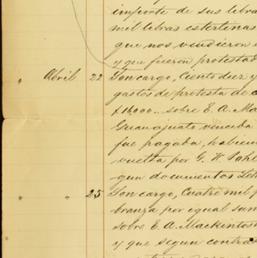 importe de sus libra
mil libras esterlinas
que nos vendieron
y que fueron protestad
Abril 22 Son cargo, Ciento diez y
gastos de protesta de
$18,000 sobre E. A. Mac
Guanajuato vencida
fue pagada, habien
vuelta por G. H.
gun documentos
25 Son cargo, Cuatro mil p
branza por igual sum
sobre E. A. Mackintos
y que segun contra